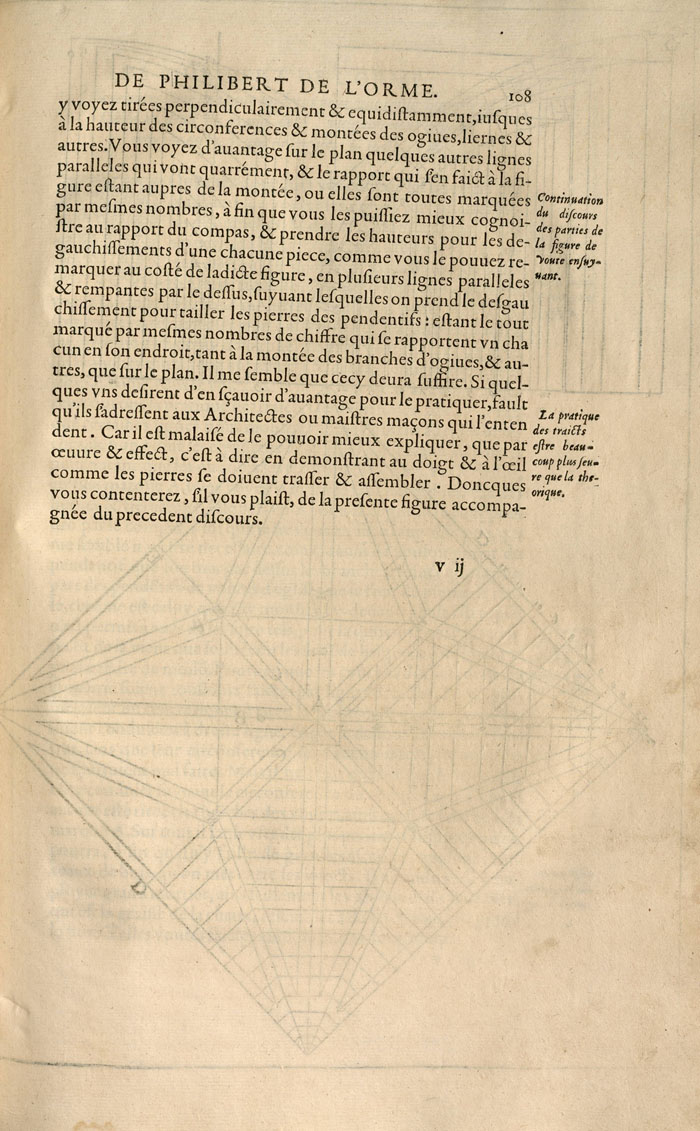 DE PHILIBERT DE L'ORME. 108
y voyez tirées perpendiculairement & equidiſtamment, iuſques
à la hauteur des circonferences & montées des ogiues, liernes &
autres. Vous voyez d'auantage ſur le plan quelques autres lignes
paralleles qui vont quarrément, & le rapport qui ſ'en faict à la fi-
gure eſtant aupres de la montée, ou elles ſont toutes marquées
par meſmes nombres, à fin que vous les puiſſiez mieux cognoi-
ſtre au rapport du compas, & prendre les hauteurs pour les de-
gauchiſſements d'une chacune piece, comme vous le pouuez re-
marquer au coſté de ladicte figure, en pluſieurs lignes paralleles
& rempantes par le deſſus, ſuyuant leſquelles on prend le deſgau
chiſſement pour tailler les pierres des pendentifs: eſtant le tout
marqué par meſmes nombres de chiffre qui ſe rapportent vn cha
cun en ſon endroit, tant à la montée des branches d'ogiues, & au-
tres, que ſur le plan. Il me ſemble que cecy deura ſuffire. Si quel-
ques vns deſirent d'en ſçauoir d'auantage pour le pratiquer, fault
qu'ils ſ'adreſſent aux Architectes ou maiſtres maçons qui l'enten
dent. Car il eſt malaiſé de le pouuoir mieux expliquer, que par
œuure & effect, c'eſt à dire en demonſtrant au doigt & à l'œil
comme les pierres ſe doiuent traſſer & aſſembler. Doncques
vous contenterez, ſ'il vous plaiſt, de la preſente figure accompa-
gnée du precedent diſcours.
Continuation
du diſcours
des parties de
la figure de
voute enſuy-
uant.
La pratique
des traicts
eſtre beau-
coup plus ſeu-
re que la the-
orique.
v ij
D